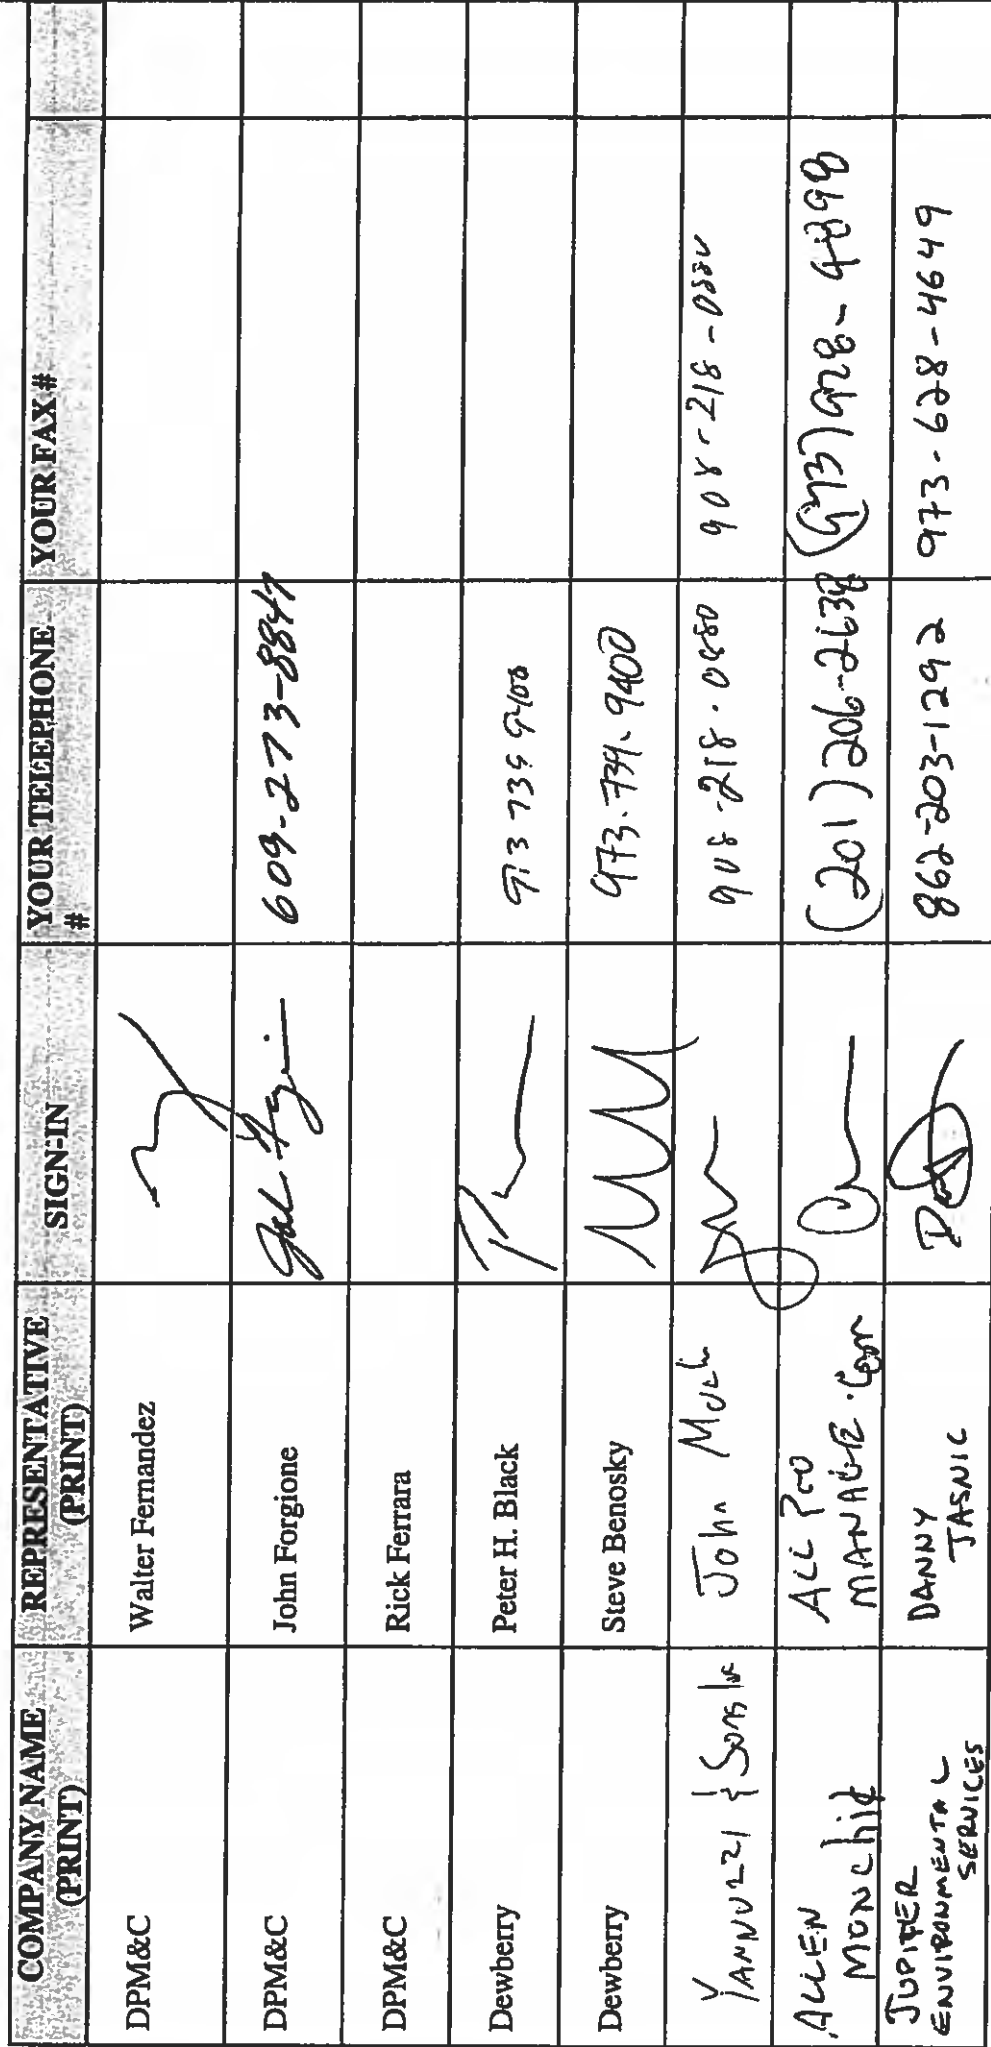 COMPANY NAME (PRINT) REPRESENTATIVE (PRINT) SIGN-IN YOUR TELEPHONE # YOUR FAX #
DPM&C Walter Fernandez
DPM&C John Forgione 609-273-8841
DPM&C Rick Ferrara
Dewberry Peter H. Black 973 739 9400
Dewberry Steve Benosky 973.739.9400
YANNUZZI & Sons Inc John 908-218-0880
ALLEN ALL PRO MANAGE (201) 206-2638 (973) 928-
JUPITER ENVIRONMENTAL SERVICES DANNY JASNIC 862-203-1292 973-628-4649